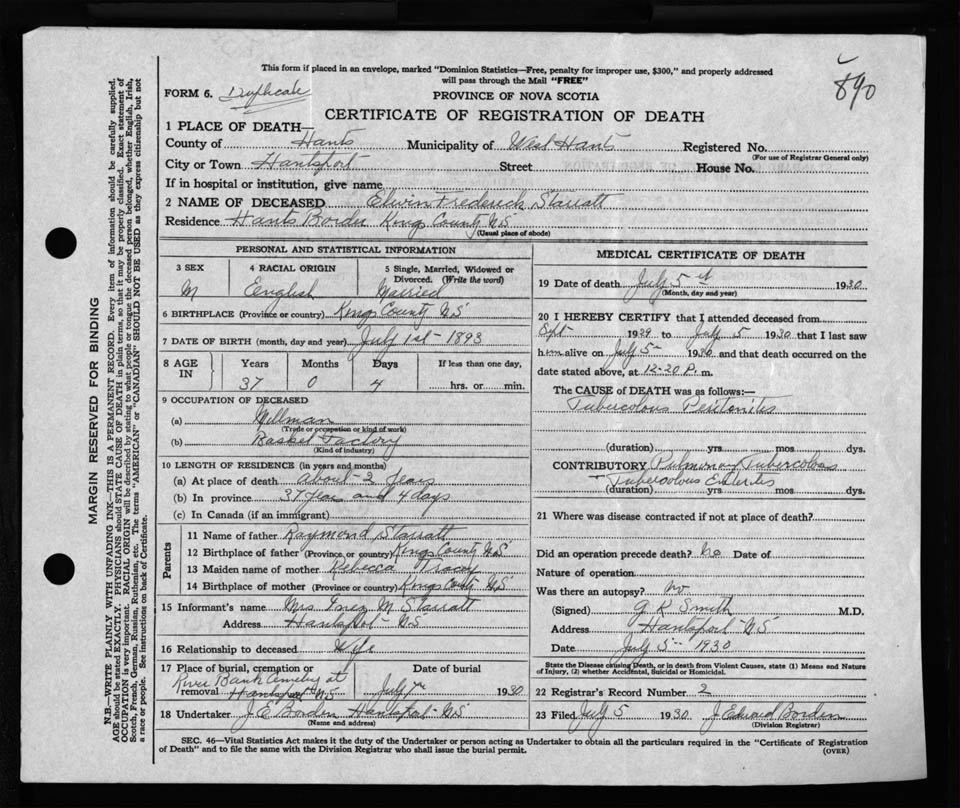 890
This form if placed in an envelope, marked "Dominion Statistics—Free, penalty for improper use, $300," and properly addressed
will pass through the Mail "FREE"
FORM 6. Duplicate
PROVINCE OF NOVA SCOTIA
CERTIFICATE OF REGISTRATION OF DEATH
1 PLACE OF DEATH—
County of Hants Municipality of West Hants Registered No.
(For use of Registrar General only)
City or Town Hantsport Street House No.
If in hospital or institution, give name
2 NAME OF DECEASED Elwin Frederick Starratt
Residence Hants Border Kings County N.S
(Usual place of abode)
PERSONAL AND STATISTICAL INFORMATION
3 SEX 4 RACIAL ORIGIN 5 Single, Married, Widowed or
Divorced. (Write the word)
M English Married
6 BIRTHPLACE (Province or country) Kings County N.S
7 DATE OF BIRTH (month, day and year) July 1st - 1893
8 AGE IN Years Months Days If less than one day,
37 0 4 hrs. or min.
9 OCCUPATION OF DECEASED
(a) Millman
(Trade or occupation or kind of work)
(b) Basket Factory
(Kind of industry)
10 LENGTH OF RESIDENCE (in years and months)
(a) At place of death about - 2 years
(b) In province 37 years and 4 days
(c) In Canada (if an immigrant)
Parents
11 Name of father Raymond Starratt
12 Birthplace of father (Province or country) Kings County N.S
13 Maiden name of mother Rebecca Tracey
14 Birthplace of mother (Province or country) Kings County N.S
15 Informant's name Mrs Inez M Starratt
Address Hantsport - N.S
16 Relationship to deceased Wife
17 Place of burial, cremation or removal Date of burial
River Bank Cemetery at
Hantsport N.S July 7th 1930
18 Undertaker J. E Borden Hantsport N.S
(Name and address)
MEDICAL CERTIFICATE OF DEATH
19 Date of death July 5th 1930
(Month, day and year)
20 I HEREBY CERTIFY that I attended deceased from
Sept - 1929 to July 5 1930 that I last saw
him alive on July 5 - 1930 and that death occurred on the
date stated above, at 12-20 P. m.
The CAUSE of DEATH was as follows:—
Tubercolous Peritonites
(duration) yrs mos. dys.
CONTRIBUTORY Pulmonary Tubercolous
Tubercolous Enterites
(duration) yrs. mos. dys.
21 Where was disease contracted if not at place of death?
Did an operation precede death? no Date of
Nature of operation
Was there an autopsy? no.
(Signed) G R Smith M.D.
Address Hantsport N S
Date July 5 - 1930
State the Disease causing Death, or in death from Violent Causes, state (1) Means and Nature
of Injury, (2) whether Accidental, Suicidal or Homicidal.
22 Registrar's Record Number 2
23 Filed July 5 1930 J Edward Borden
(Division Registrar)
SEC. 46—Vital Statistics Act makes it the duty of the Undertaker or person acting as Undertaker to obtain all the particulars required in the "Certificate of Registration
of Death" and to file the same with the Division Registrar who shall issue the burial permit. (OVER)
MARGIN RESERVED FOR BINDING
N.B.—WRITE PLAINLY WITH UNFADING INK—THIS IS A PERMANENT RECORD. Every item of information should be carefully supplied.
AGE should be stated EXACTLY. PHYSICIANS should STATE CAUSE OF DEATH in plain terms, so that it may be properly classified. Exact statement of
OCCUPATION is very important. RACIAL ORIGIN will be described by stating to what people or tongue the deceased person belonged, whether English, Irish,
Scotch, French, German, Russian, Ruthenian, etc. The terms "AMERICAN" or "CANADIAN" SHOULD NOT BE USED as they express citizenship but not
a race or people. See instructions on back of Certificate.